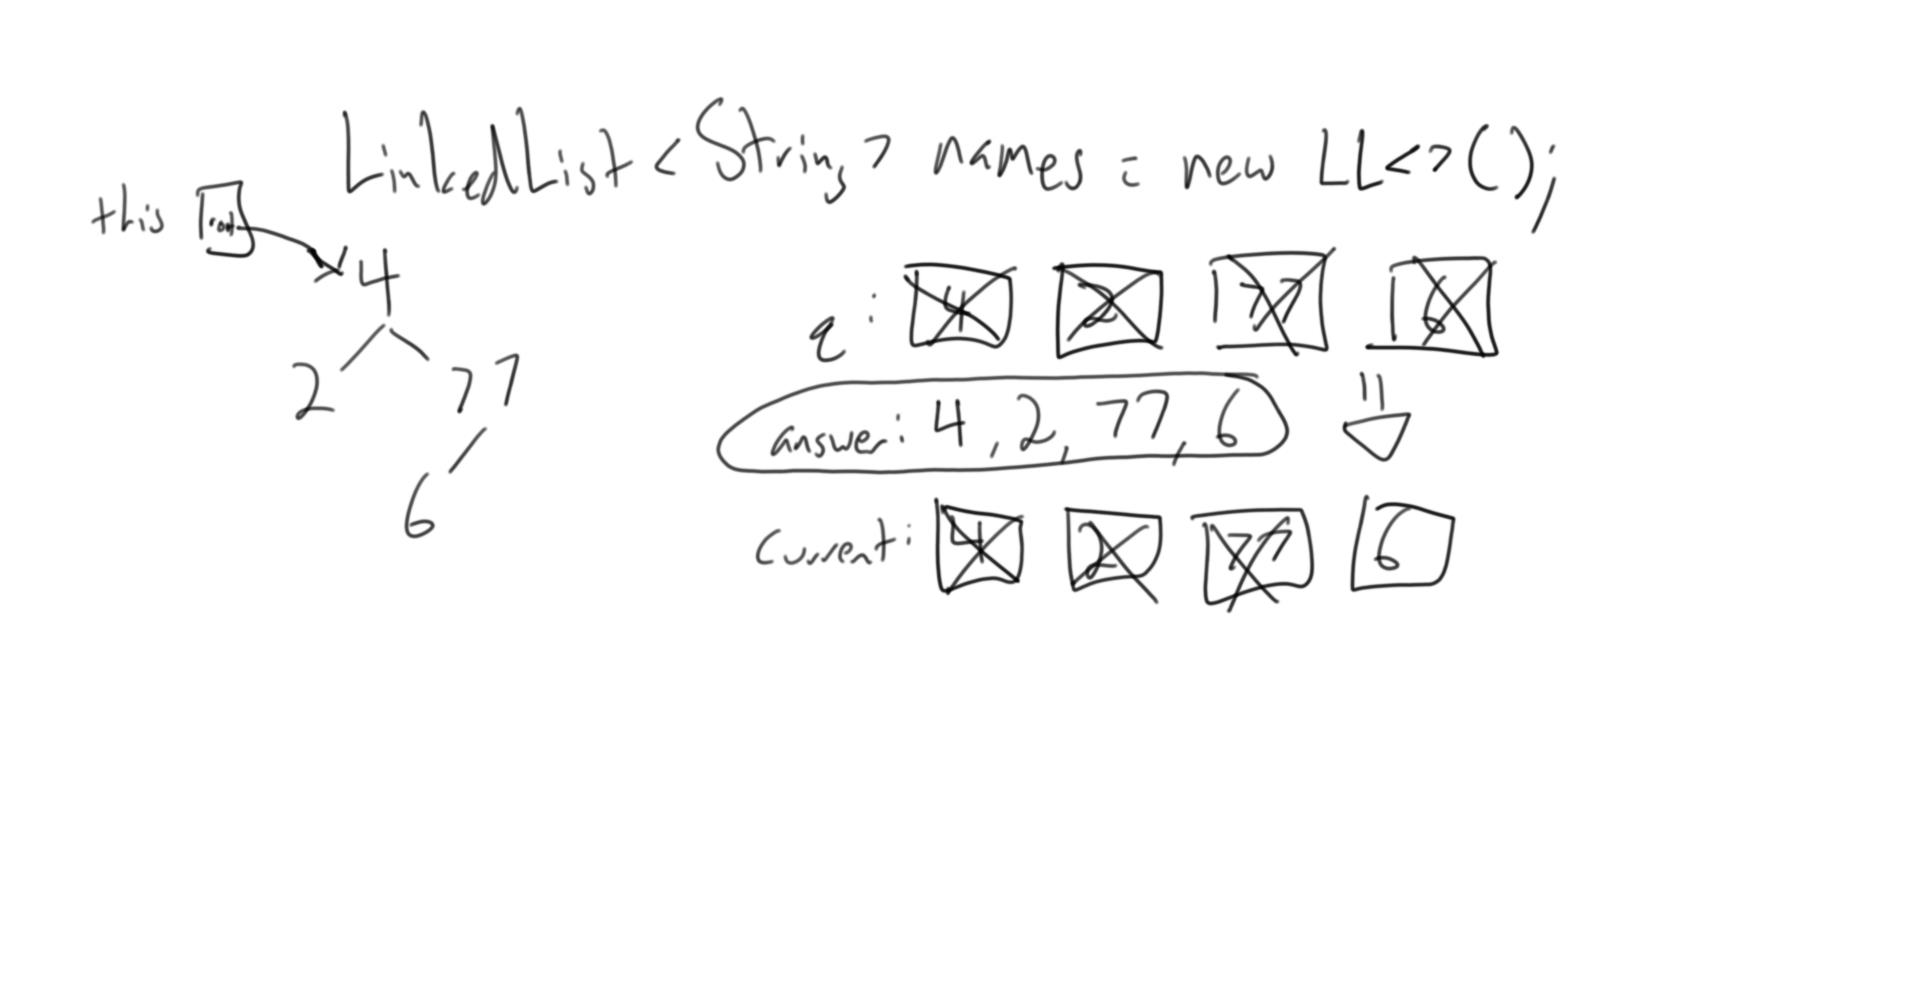 LinkedList <String> names = new LL<>();
this root
4
2 77
6
q: 4 2 77 6
answer: 4, 2, 77, 6
current: 4 2 77 6